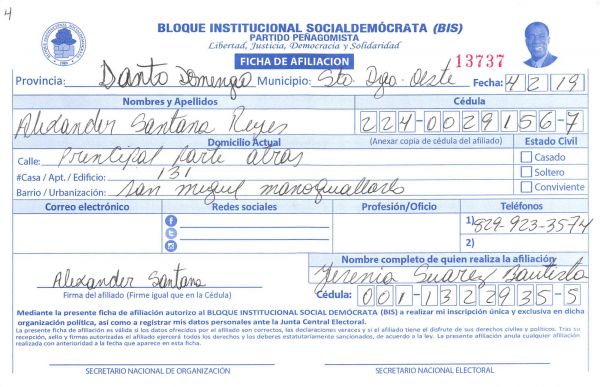 4
BLOQUE INSTITUCIONAL SOCIALDEMÓCRATA (BIS)
PARTIDO PEÑAGOMISTA
Libertad, Justicia, Democracia y Solidaridad
FICHA DE AFILIACION 13737
Provincia: Santo Domingo Municipio: Sto. Dgo. Oeste Fecha: 4 2 19
Nombres y Apellidos Cédula
Alexander Santana Reyes 224-0029156-7
Domicilio Actual (Anexar copia de cédula del afiliado) Estado Civil
Calle: principal parte atras Casado
#Casa / Apt. / Edificio: 131 Soltero
Barrio / Urbanización: san miguel Conviviente
Correo electrónico Redes sociales Profesión/Oficio Teléfonos
1) 829-923-3574
2)
Nombre completo de quien realiza la afiliación
Alexander Santana Yesenia Suarez Bautista
Firma del afiliado (Firme igual que en la Cédula) Cédula: 001-1322935-5
Mediante la presente ficha de afiliación autorizo al BLOQUE INSTITUCIONAL SOCIAL DEMÓCRATA (BIS) a realizar mi inscripción única y exclusiva en dicha
organización política, así como a registrar mis datos personales ante la Junta Central Electoral.
La presente ficha de afiliación es válida si los datos ofrecidos por el afiliado son correctos, las declaraciones veraces y si el afiliado tiene el disfrute de sus derechos civiles y políticos. Tras su
recepción, sello y firmas autorizadas el afiliado ejercerá todos los derechos y los deberes estatutariamente sancionados, de acuerdo a la ley. La presente afiliación anula cualquier afiliación
realizada con anterioridad a la fecha que aparece en esta ficha.
SECRETARIO NACIONAL DE ORGANIZACIÓN SECRETARIO NACIONAL ELECTORAL